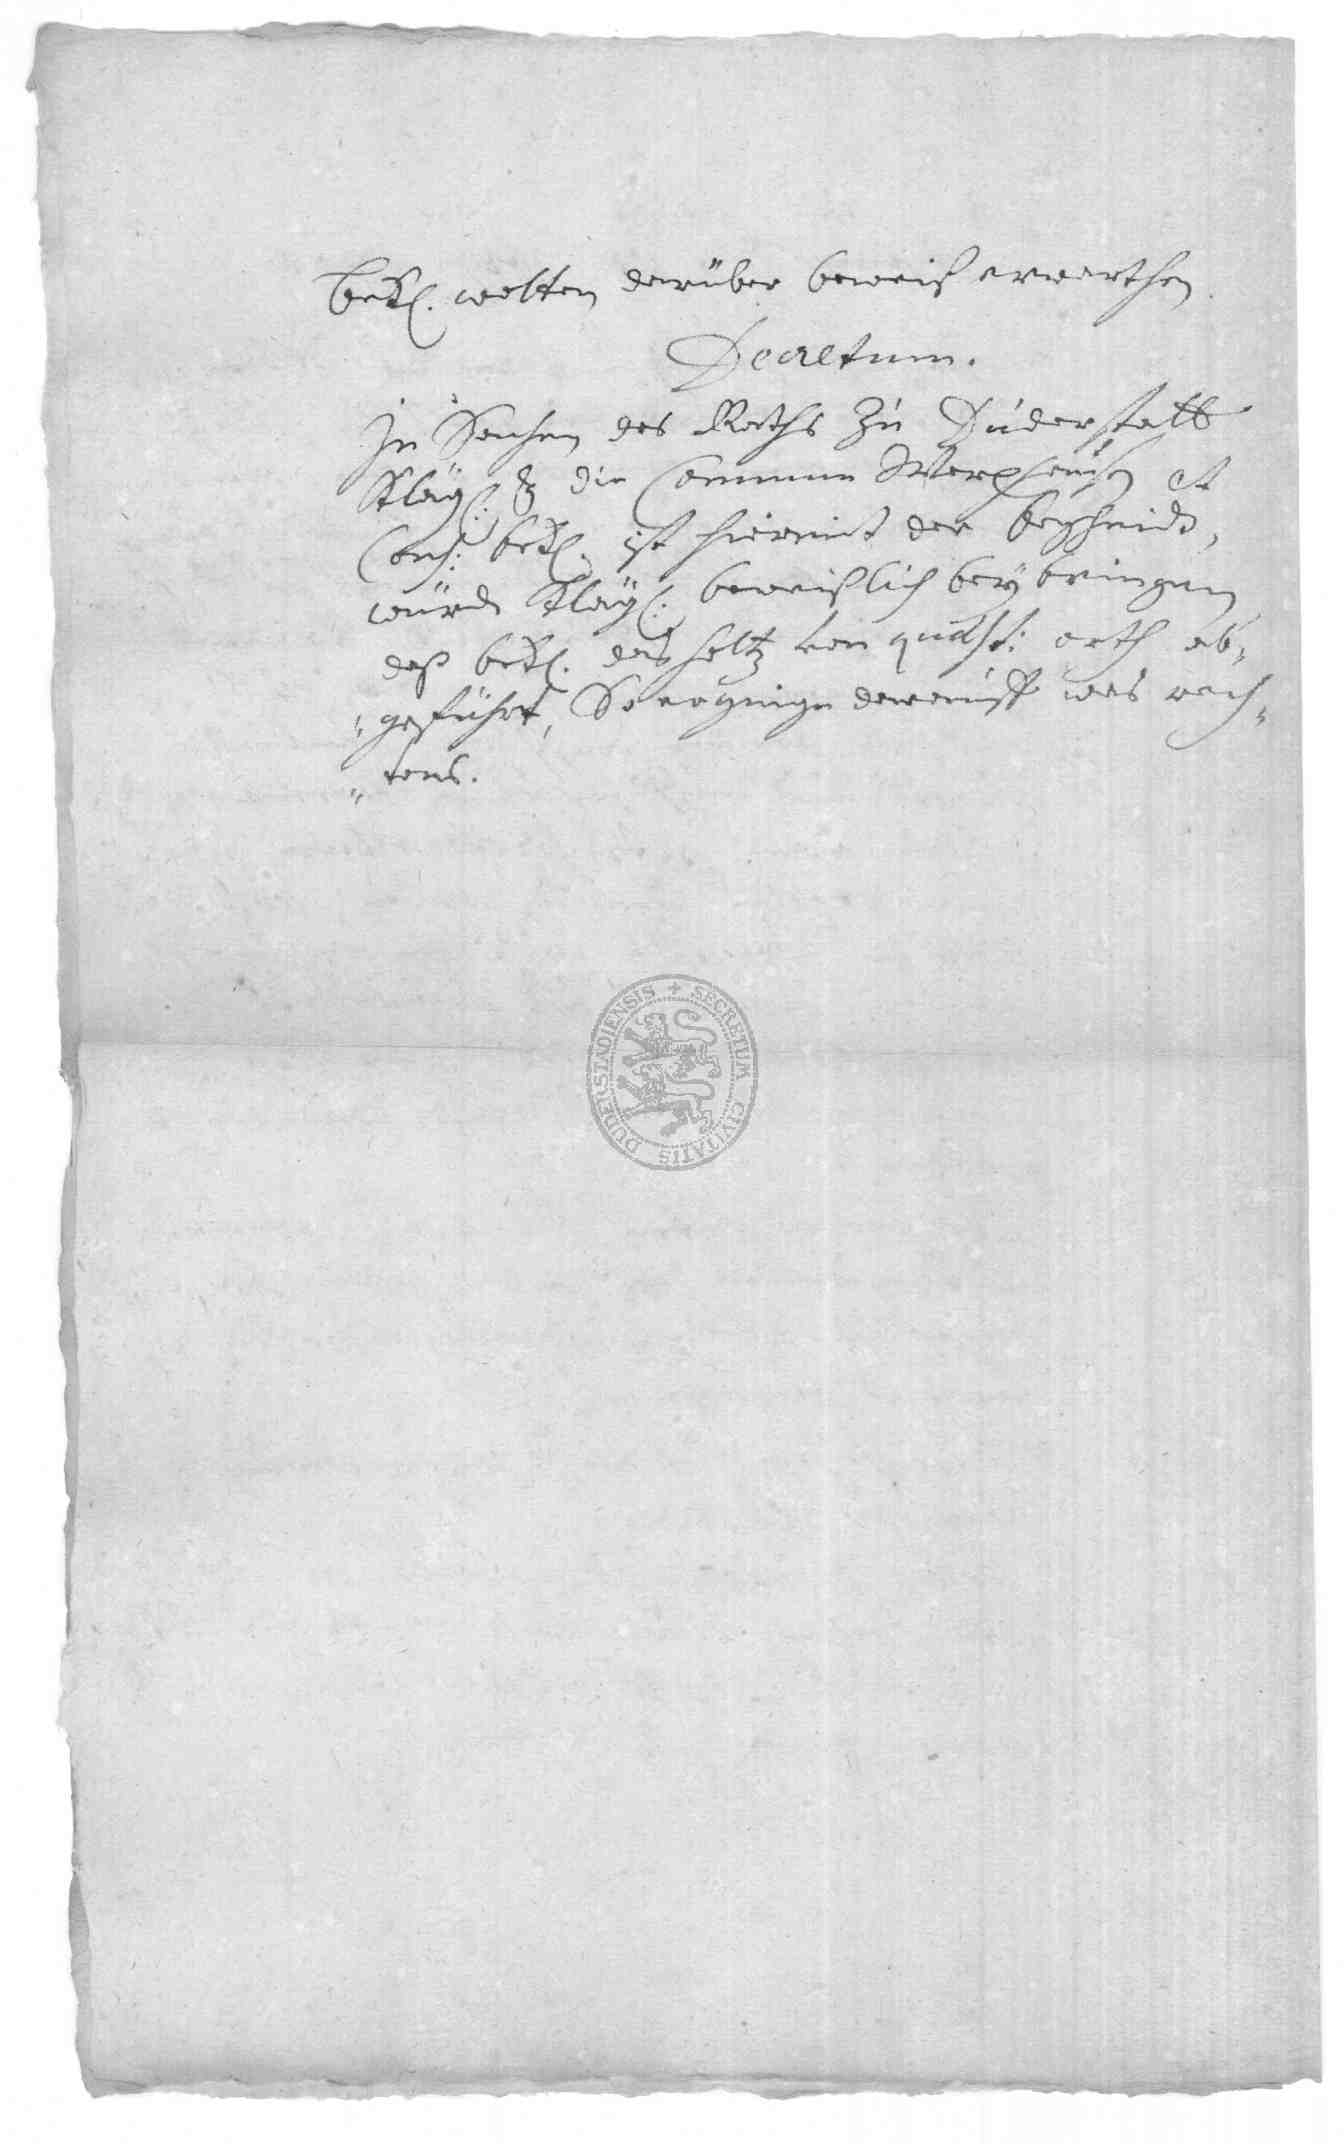 bekl. wolten darüber beweiß erwarthen
Decretum.
In Sachen des Raths zu Duderstatt
Kläg. die Commun Werxhausen et
Cons: bekl. ist hiermit der bescheidt,
würde Kläg. beweißlich beybringen
daß bekl. das holtz von quaest: orth ab-
geführt, So ergeige darauff was rech-
tens.
DUDERSTADIENSIS + SECRETUM CIVITATIS